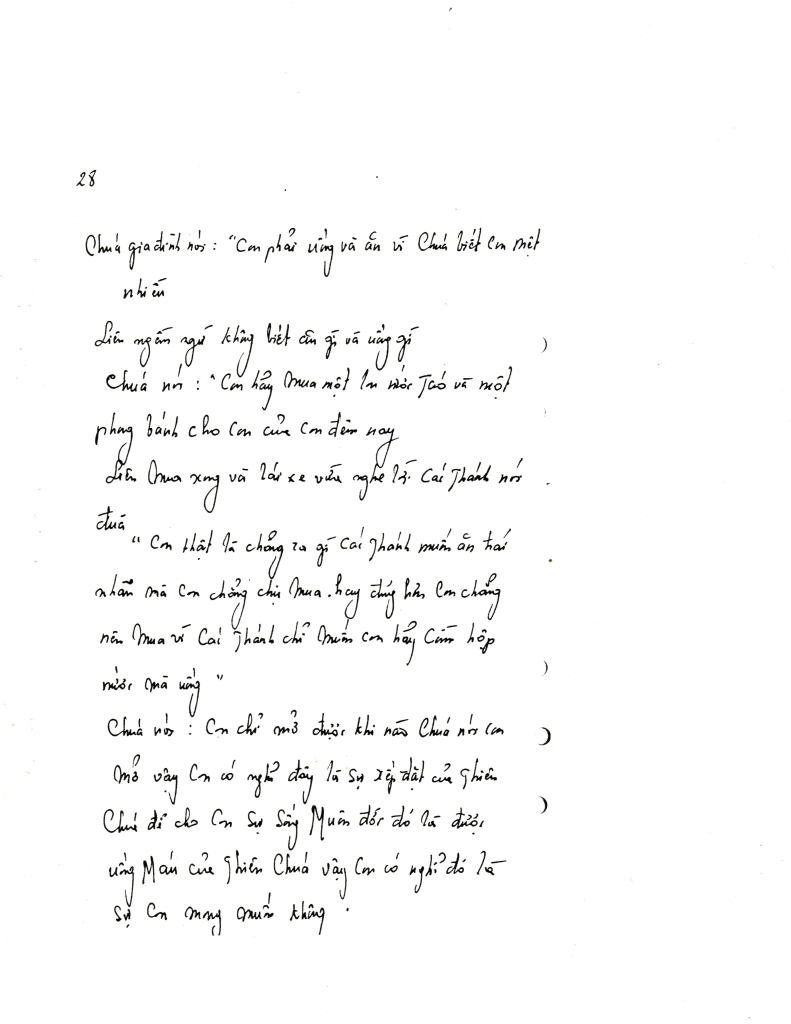 28
Chuá gia đình nói : "Con phải uống và ăn vì Chuá biết Con mệt
nhiều
Liên ngần ngừ không biết ăn gì và uống gì
Chuá nói : "Con hãy Mua một lon nước Táo và một
phong bánh cho Con của Con đêm nay
Liên Mua xong và lái xe vừa nghe lời Cai Thánh nói
đuà
" Con thật là chẳng ra gì Cai Thánh muốn ăn trái
nhãn mà Con chẳng chịu Mua. hay đúng hơn Con chẳng
nên Mua vì Cai Thánh chỉ Muốn Con hãy Cầm hộp
nước mà uống "
Chuá nói : Con chỉ mở được khi nào Chuá nói Con
Mở vậy Con có nghĩ đây là Sự xếp đặt của Thiên
Chuá để cho Con Sự Sống Muôn đời đó là được
uống Máu của Thiên Chuá vậy Con có nghĩ đó là
Sự Con mong muốn không .